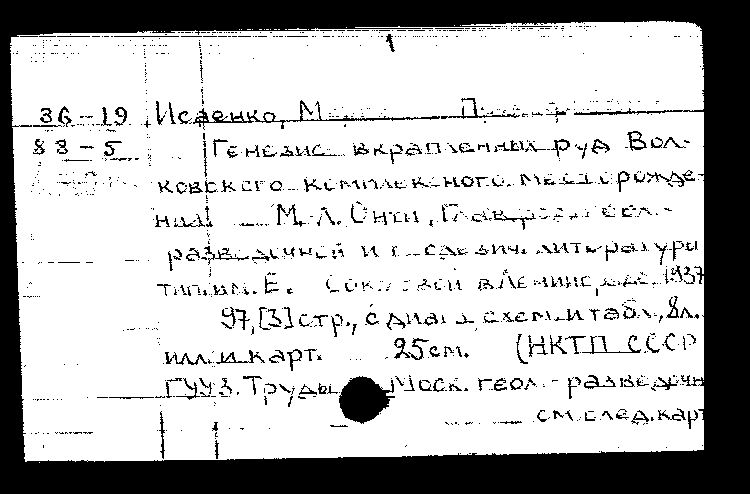 36-19 Исаенко, М
88-5 Генезис вкрапленных руд Вол-
ковского комплексного месторожде-
ния. М.-Л. Онти, Глав. геол.-
разведочной и геодезич. литературы
тип. им. Е. Соколовой в Ленинграде. 1937
97,[3] стр., с диагр, схем. и табл., 8л.
илл. и карт. 25 см. (НКТП СССР
ГУУЗ. Труды Моск. геол.-разведочн
см. след. карт